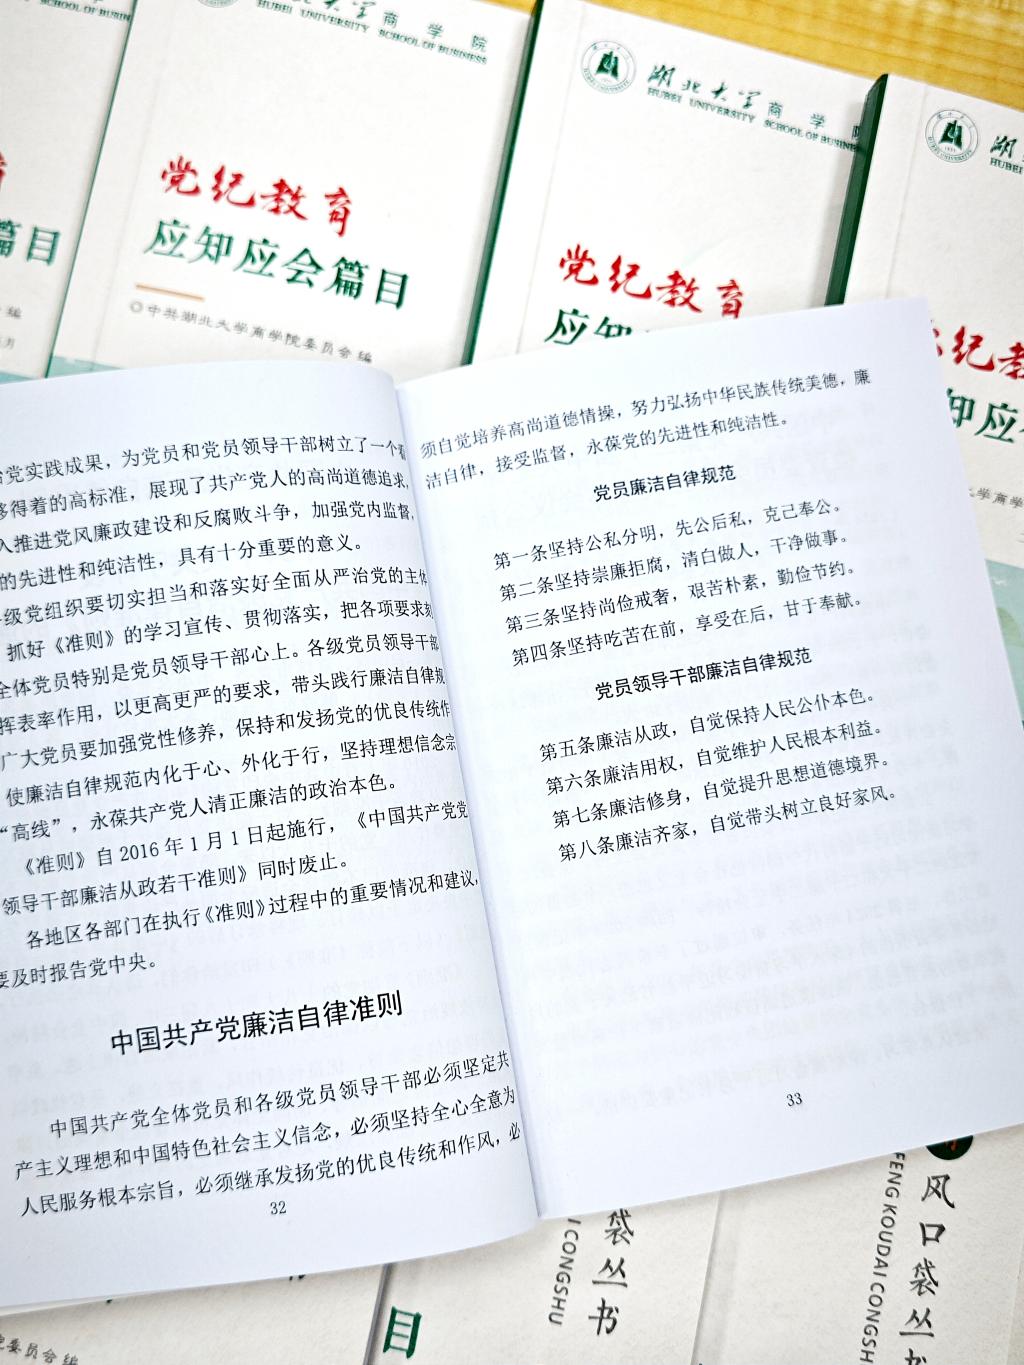 商学院
HUBEI UNIVERSITY SCHOOL OF BUSINESS
党纪教育
应知应会篇目
◎中共湖北大学商学院委员会编
湖北大学商学院
HUBEI UNIVERSITY SCHOOL OF BUSINESS
党纪教育
应知
湖
HUBEI
纪教
知应
篇目
编
月
党实践成果，为党员和党员领导干部树立了一个看
得着的高标准，展现了共产党人的高尚道德追求,
推进党风廉政建设和反腐败斗争，加强党内监督,
的先进性和纯洁性，具有十分重要的意义。
级党组织要切实担当和落实好全面从严治党的主体
抓好《准则》的学习宣传、贯彻落实，把各项要求刻
全体党员特别是党员领导干部心上。各级党员领导干部
挥表率作用，以更高更严的要求，带头践行廉洁自律规
广大党员要加强党性修养，保持和发扬党的优良传统作
使廉洁自律规范内化于心、外化于行，坚持理想信念宗
“高线”，永葆共产党人清正廉洁的政治本色。
《准则》自 2016 年 1 月 1 日起施行，《中国共产党党
领导干部廉洁从政若干准则》同时废止。
各地区各部门在执行《准则》过程中的重要情况和建议,
要及时报告党中央。
中国共产党廉洁自律准则
中国共产党全体党员和各级党员领导干部必须坚定共
产主义理想和中国特色社会主义信念，必须坚持全心全意为
人民服务根本宗旨，必须继承发扬党的优良传统和作风，必
32
须自觉培养高尚道德情操，努力弘扬中华民族传统美德，廉
洁自律，接受监督，永葆党的先进性和纯洁性。
党员廉洁自律规范
第一条坚持公私分明，先公后私，克己奉公。
第二条坚持崇廉拒腐，清白做人，干净做事。
第三条坚持尚俭戒奢，艰苦朴素，勤俭节约。
第四条坚持吃苦在前，享受在后，甘于奉献。
党员领导干部廉洁自律规范
第五条廉洁从政，自觉保持人民公仆本色。
第六条廉洁用权，自觉维护人民根本利益。
第七条廉洁修身，自觉提升思想道德境界。
第八条廉洁齐家，自觉带头树立良好家风。
33
学商学院
院委员会编
目
袋丛书
I CONGSHU
风口袋丛
FENG KOUDAI CONGSH